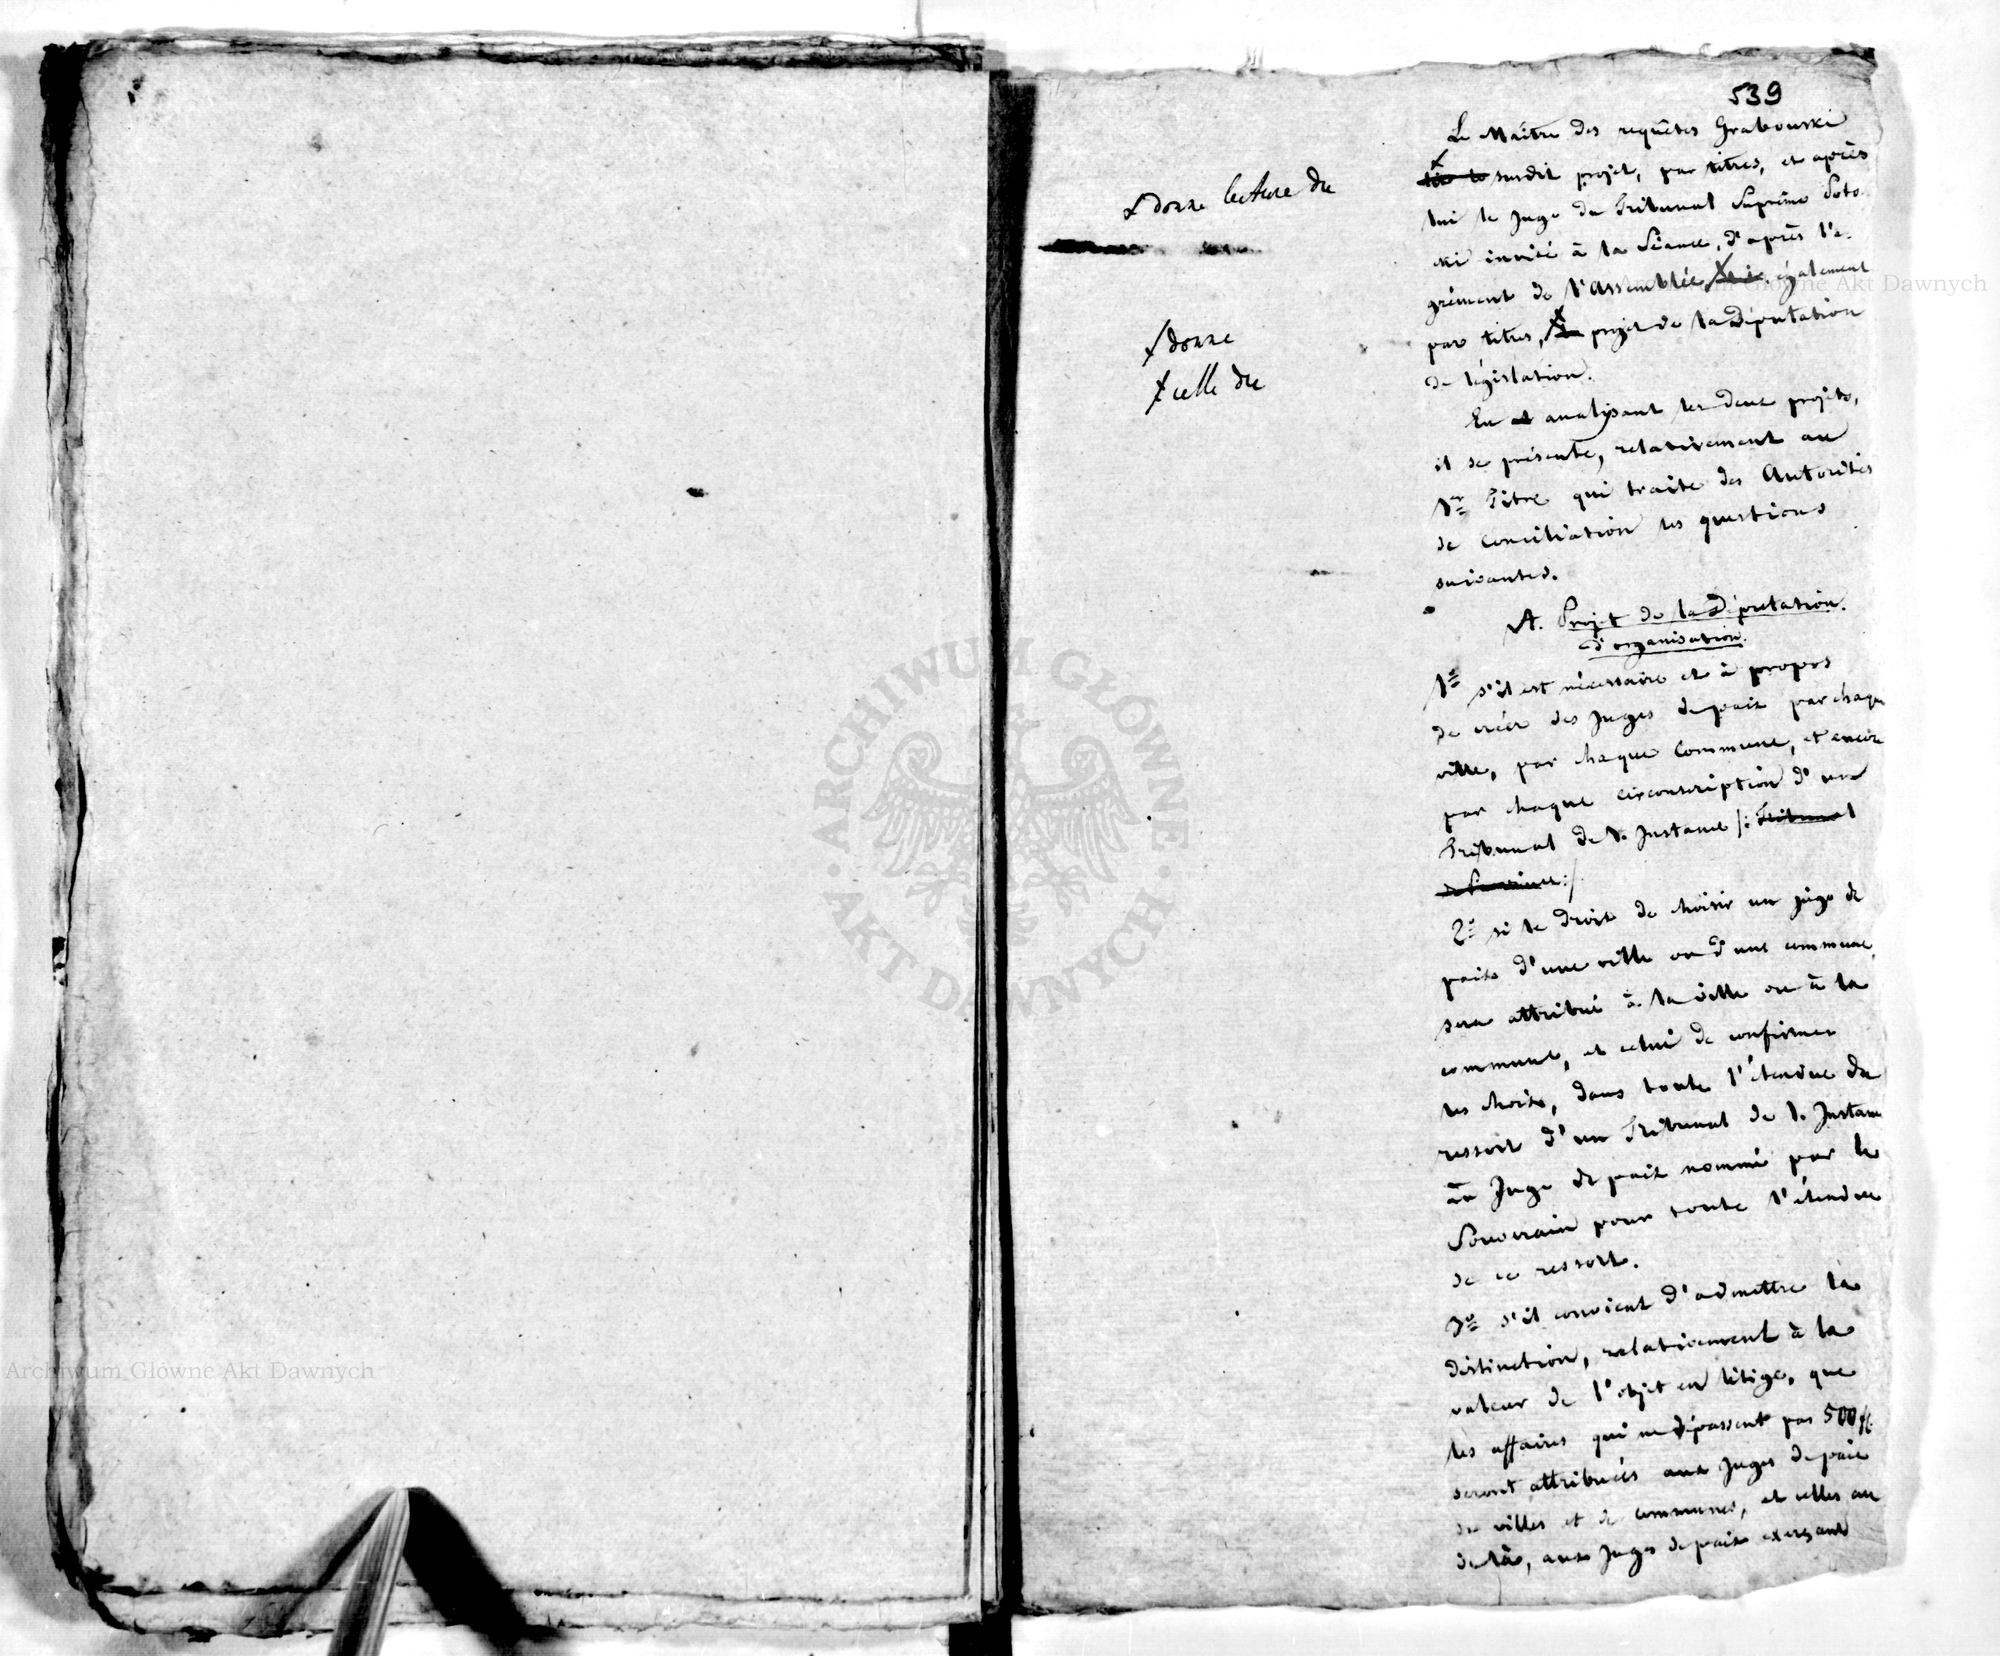 539
Le Maître des requêtes Grabowski
x
lit le susdit projet, par titres, et après
lui le Juge du Tribunal Suprême Poto-
cki invité à la Séance, d'après l'a-
grément de l'Assemblée, x lit également
par titres, x le projet de la Députation
de législation.
x donne lecture du
x donne
x celle du
En analysant les deux projets,
il se présente, relativement au
1er Titre qui traite des Autorités
de conciliation les questions
suivantes.
A. Projet de la Députation
d'organisation.
1º s'il est nécessaire et à propos
de créer des Juges de paix par chaque
ville, par chaque Commune, et encore
par chaque circonscription d'un
Tribunal de 1. Instance /: Tribunal
:/
2º si le droit de choisir un juge de
paix d'une ville ou d'une commune,
sera attribué à la ville ou à la
commune, et celui de confirmer
les choix, dans toute l'étendue du
ressort d'un Tribunal de 1. Instance
au Juge de paix nommé par le
Souverain pour toute l'étendue
de ce ressort.
3º s'il convient d'admettre la
distinction, relativement à la
valeur de l'objet en litige, que
les affaires qui ne dépassent pas 500 fl.
seront attribuées aux Juges de paix
de villes et de communes, et celles au
delà, aux Juges de paix exerçant
ARCHIWUM GŁÓWNE · AKT DAWNYCH ·
Archiwum Główne Akt Dawnych
Archiwum Główne Akt Dawnych